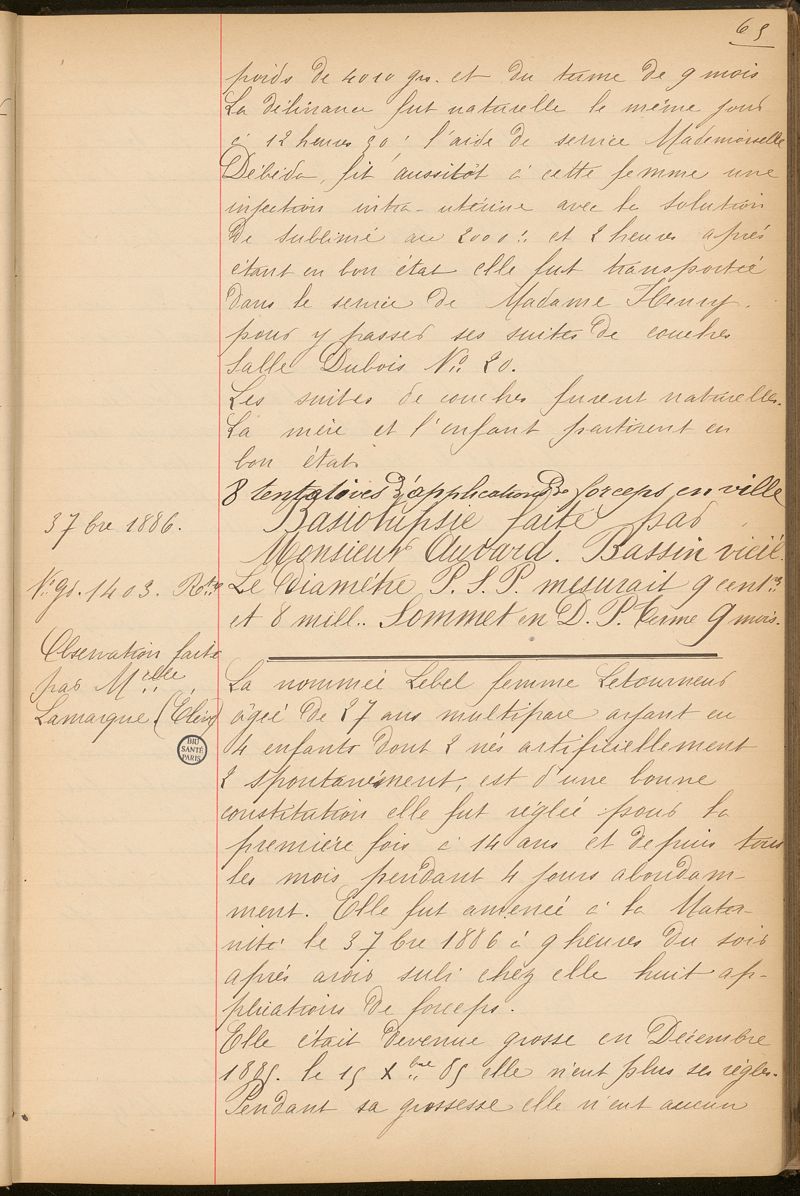 65
poids de 4010 grs. et du terme de 9 mois
La délivrance fut naturelle le même jour
à 12 heures 30 : l'aide de service Mademoiselle
Débéda, fit aussitôt à cette femme une
injection intra-utérine avec la solution
de sublimé au 2000e. et 2 heures après
étant en bon état elle fut transportée
dans le service de Madame Henry.
pour y passer ses suites de couches
Salle Dubois No. 20.
Les suites de couches furent naturelles.
La mère et l'enfant partirent en
bon état.
8 tentatives d'applications de forceps en ville
3 7bre 1886.
Basiotripsie faite par
Monsieur Auvard. Bassin vicié.
No. Gl. 1403.
Le Diamètre P. S. P. mesurait 9 cent.
et 8 mill.. Sommet en D. P. terme 9 mois.
Observation faite
par Melle
Lamarque. (Elève)
BIU
SANTÉ
PARIS
La nommée Lebel femme Letourneur
âgée de 27 ans multipare ayant eu
4 enfants dont 2 nés artificiellement
2 spontanément, est d'une bonne
constitution elle fut réglée pour la
première fois à 14 ans et depuis tous
les mois pendant 4 jours abondam-
ment. Elle fut amenée à la Mater-
nité le 3 7bre 1886 à 9 heures du soir
après avoir subi chez elle huit ap-
plications de forceps.
Elle était devenue grosse en Décembre
1885. le 15 Xbre 85 elle n'eut plus ses règles.
Pendant sa grossesse elle n'eut aucun